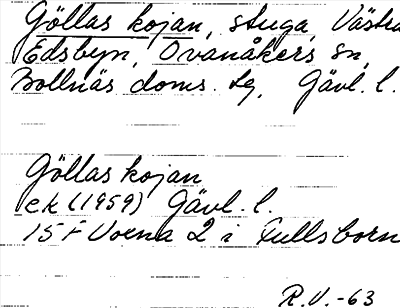 Göllas kojan, stuga, Västra
Edsbyn, Ovanåkers sn,
Bollnäs doms. tg, Gävl. l.
Göllas kojan
ek (1959) Gävl. l.
15 F Voxna 2 i Fullsborn
R.V.-63